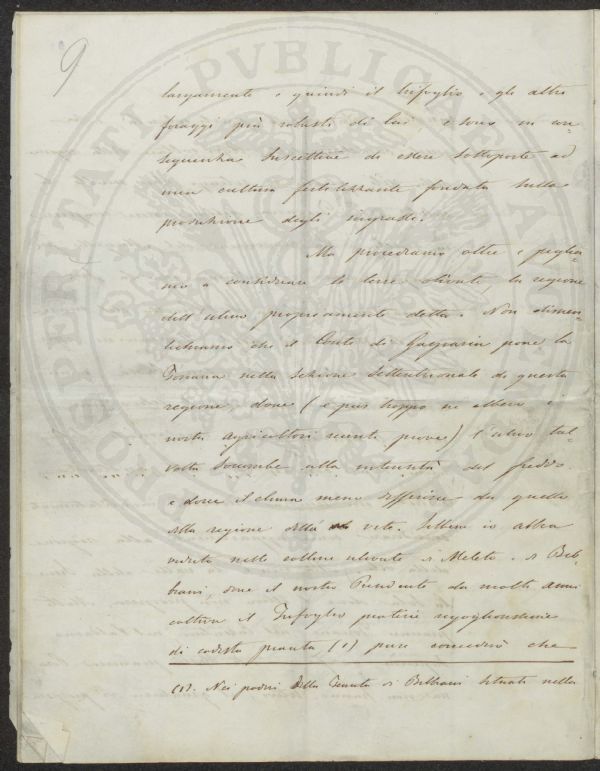 9
largamente e quindi il trifoglio e gli altri
foraggi più robusti di lui, e sono in con=
seguenza suscettive di essere sottoposte ad
una cultura fertilizzante fondata sulla
produzione degli ingrassi.
Ma procediamo oltre e peglia=
mo a considerare le terre olivate la regione
dell'ulivo propriamente detta. Non dimen=
tichiamo che il Conte di Gasparin pone la
Toscana nella sezione settentrionale di questa
regione, dove (e pur troppo ne ebbero i
nostri agricoltori recenti prove) l'ulivo tal=
volta soccombe alla intensità del freddo.
e dove il clima meno differisce da quello
della regione della vite. Sebbene io abbia
veduto nelle colline ulivate di Meleto e di Bib=
biani, dove il nostro Presidente da molti anni
coltiva il Trifoglio pratense
di codesta pianta (1) pure concederò che
(1). Nei poderi della Tenuta di Bibbiani situati nella
PROSPERITATI PVBLICAE